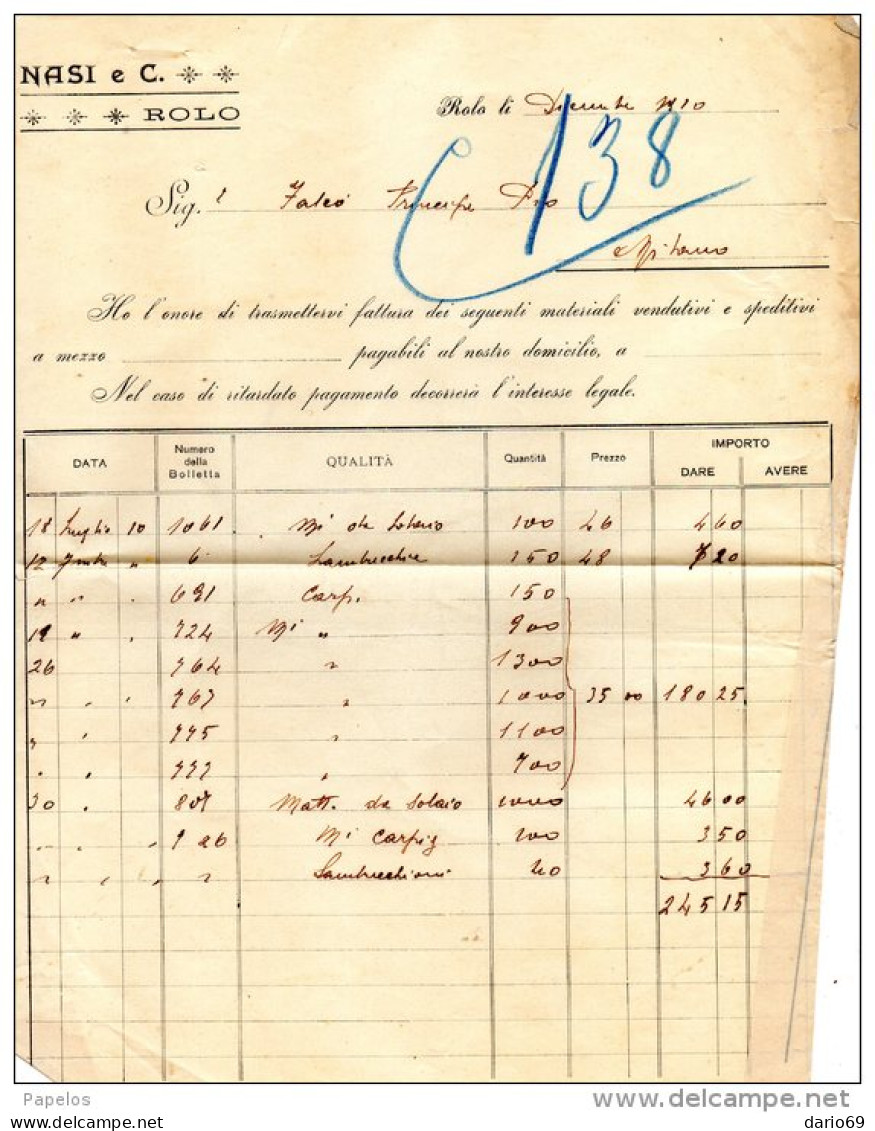 NASI e C.
ROLO
Rolo li Dicembre 1910
C 138
Sig. Falcò Principe Pio
Milano
Ho l'onore di trasmettervi fattura dei seguenti materiali vendutivi e speditivi
a mezzo pagabili al nostro domicilio, a
Nel caso di ritardato pagamento decorrerà l'interesse legale.
DATA Numero della Bolletta QUALITÀ Quantità Prezzo IMPORTO DARE AVERE
18 Luglio 10 1061 Mi da Solaio 100 46 4 60
12 " 6 Lambrecchie 150 48 7 20
" " " 691 Carp. 150
19 " " 724 Mi " 900
26 764 " 1300
" " " 767 " 1000 35 00 180 25
" " 775 " 1100
" " 777 " 700
30 " 807 Matt. da Solaio 1000 46 00
" " " " Mi Carpig 100 3 50
" " " " " Lambrecchioni 3 60
245 15
Papelos
www.delcampe.net
dario69